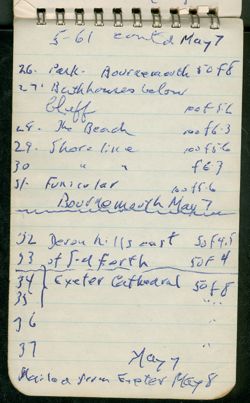 5-61 contd May 7
26. Park. Bournemouth 50 f 8
27. Bathhouses below
bluff 100 f 5.6
28. The Beach 100 f 6.3
29. Shore line 100 f 5.6
30 " " f 6.3
31. Funicular 100 f 5.6
Bournemouth May 7
32 Devon hills east 50 f 4.5
33 of Sidforth 50 f 4
34 Exeter Cathedral 50 f 8
35 "
36
37 "
May 7
Mailed from Exeter May 8